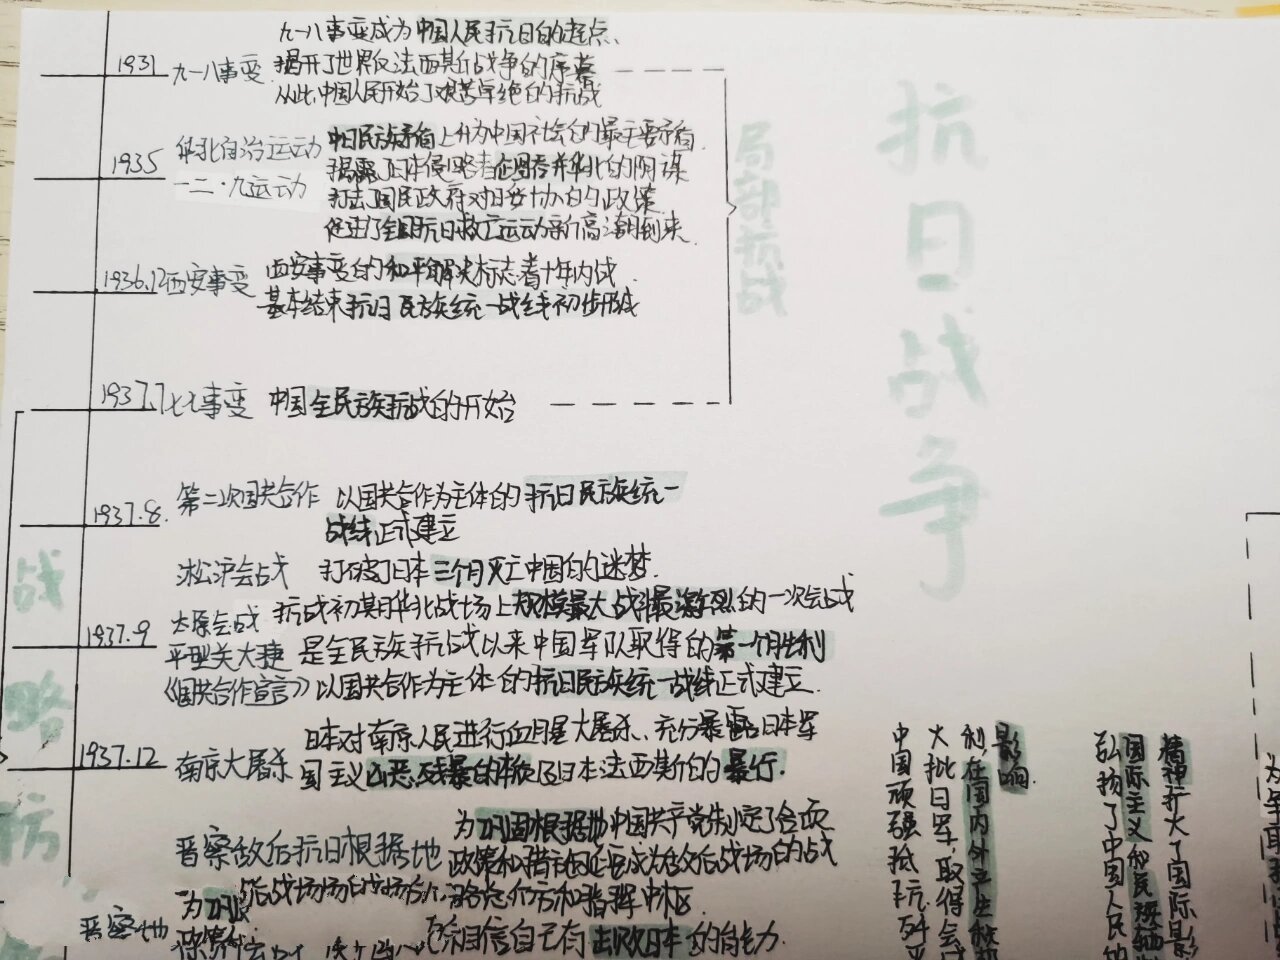 抗日战争
局部抗战
1931
九一八事变
九一八事变成为中国人民抗日的起点、
揭开了世界反法西斯战争的序幕
从此,中国人民开始了艰苦卓绝的抗战
1935
华北自治运动
一二·九运动
中日民族矛盾上升为中国社会的最主要矛盾.
揭露了日本侵略者企图吞并华北的阴谋
打击了国民政府对日妥协的政策
促进了全国抗日救亡运动新高潮到来.
1936.12
西安事变
西安事变的和平解决标志着十年内战
基本结束抗日民族统一战线初步形成
1937.7
七七事变
中国全民族抗战的开始
1937.8.
第二次国共合作
以国共合作为主体的抗日民族统一
战线正式建立
淞沪会战
打破了日本三个月灭亡中国的迷梦.
1937.9
太原会战
抗战初期华北战场上规模最大战斗最激烈的一次会战
平型关大捷
是全民族抗战以来中国军队取得的第一个胜利
《国共合作宣言》
以国共合作为主体的抗日民族统一战线正式建立.
1937.12
南京大屠杀
日本对南京人民进行血腥大屠杀、充分暴露日本军
国主义凶恶残暴的
及日本法西斯的暴行.
晋察敌后抗日根据地
为巩固根据地中国共产党制定了各项
政策和措
成为敌后战场的战
和指挥中枢.
晋察地
为巩
相信自己有击败日本的能力.
战略防
影响.
利,在国内外产生
大批日军,取得会
中国顽强抵抗
精神扩大了国际影
国际主义和民族
弘扬了中国人民
为